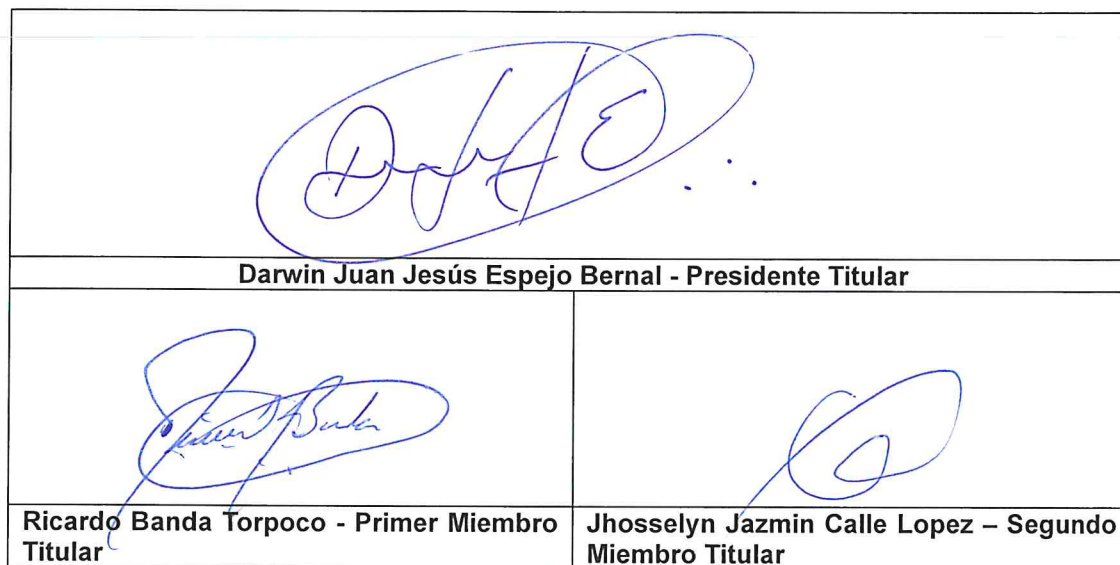 Darwin Juan Jesús Espejo Bernal - Presidente Titular
Ricardo Banda Torpoco - Primer Miembro
Titular
Jhosselyn Jazmin Calle Lopez – Segundo
Miembro Titular